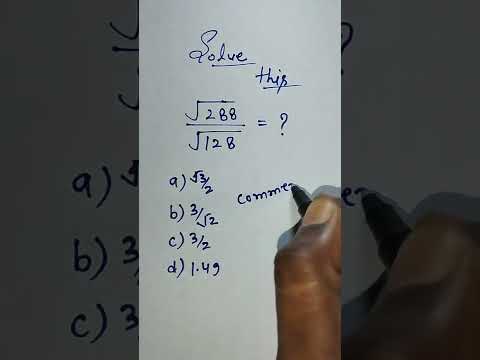 Solve
this
√288/√128 = ?
a) √3/2
b) 3/√2
c) 3/2
d) 1.49
comme